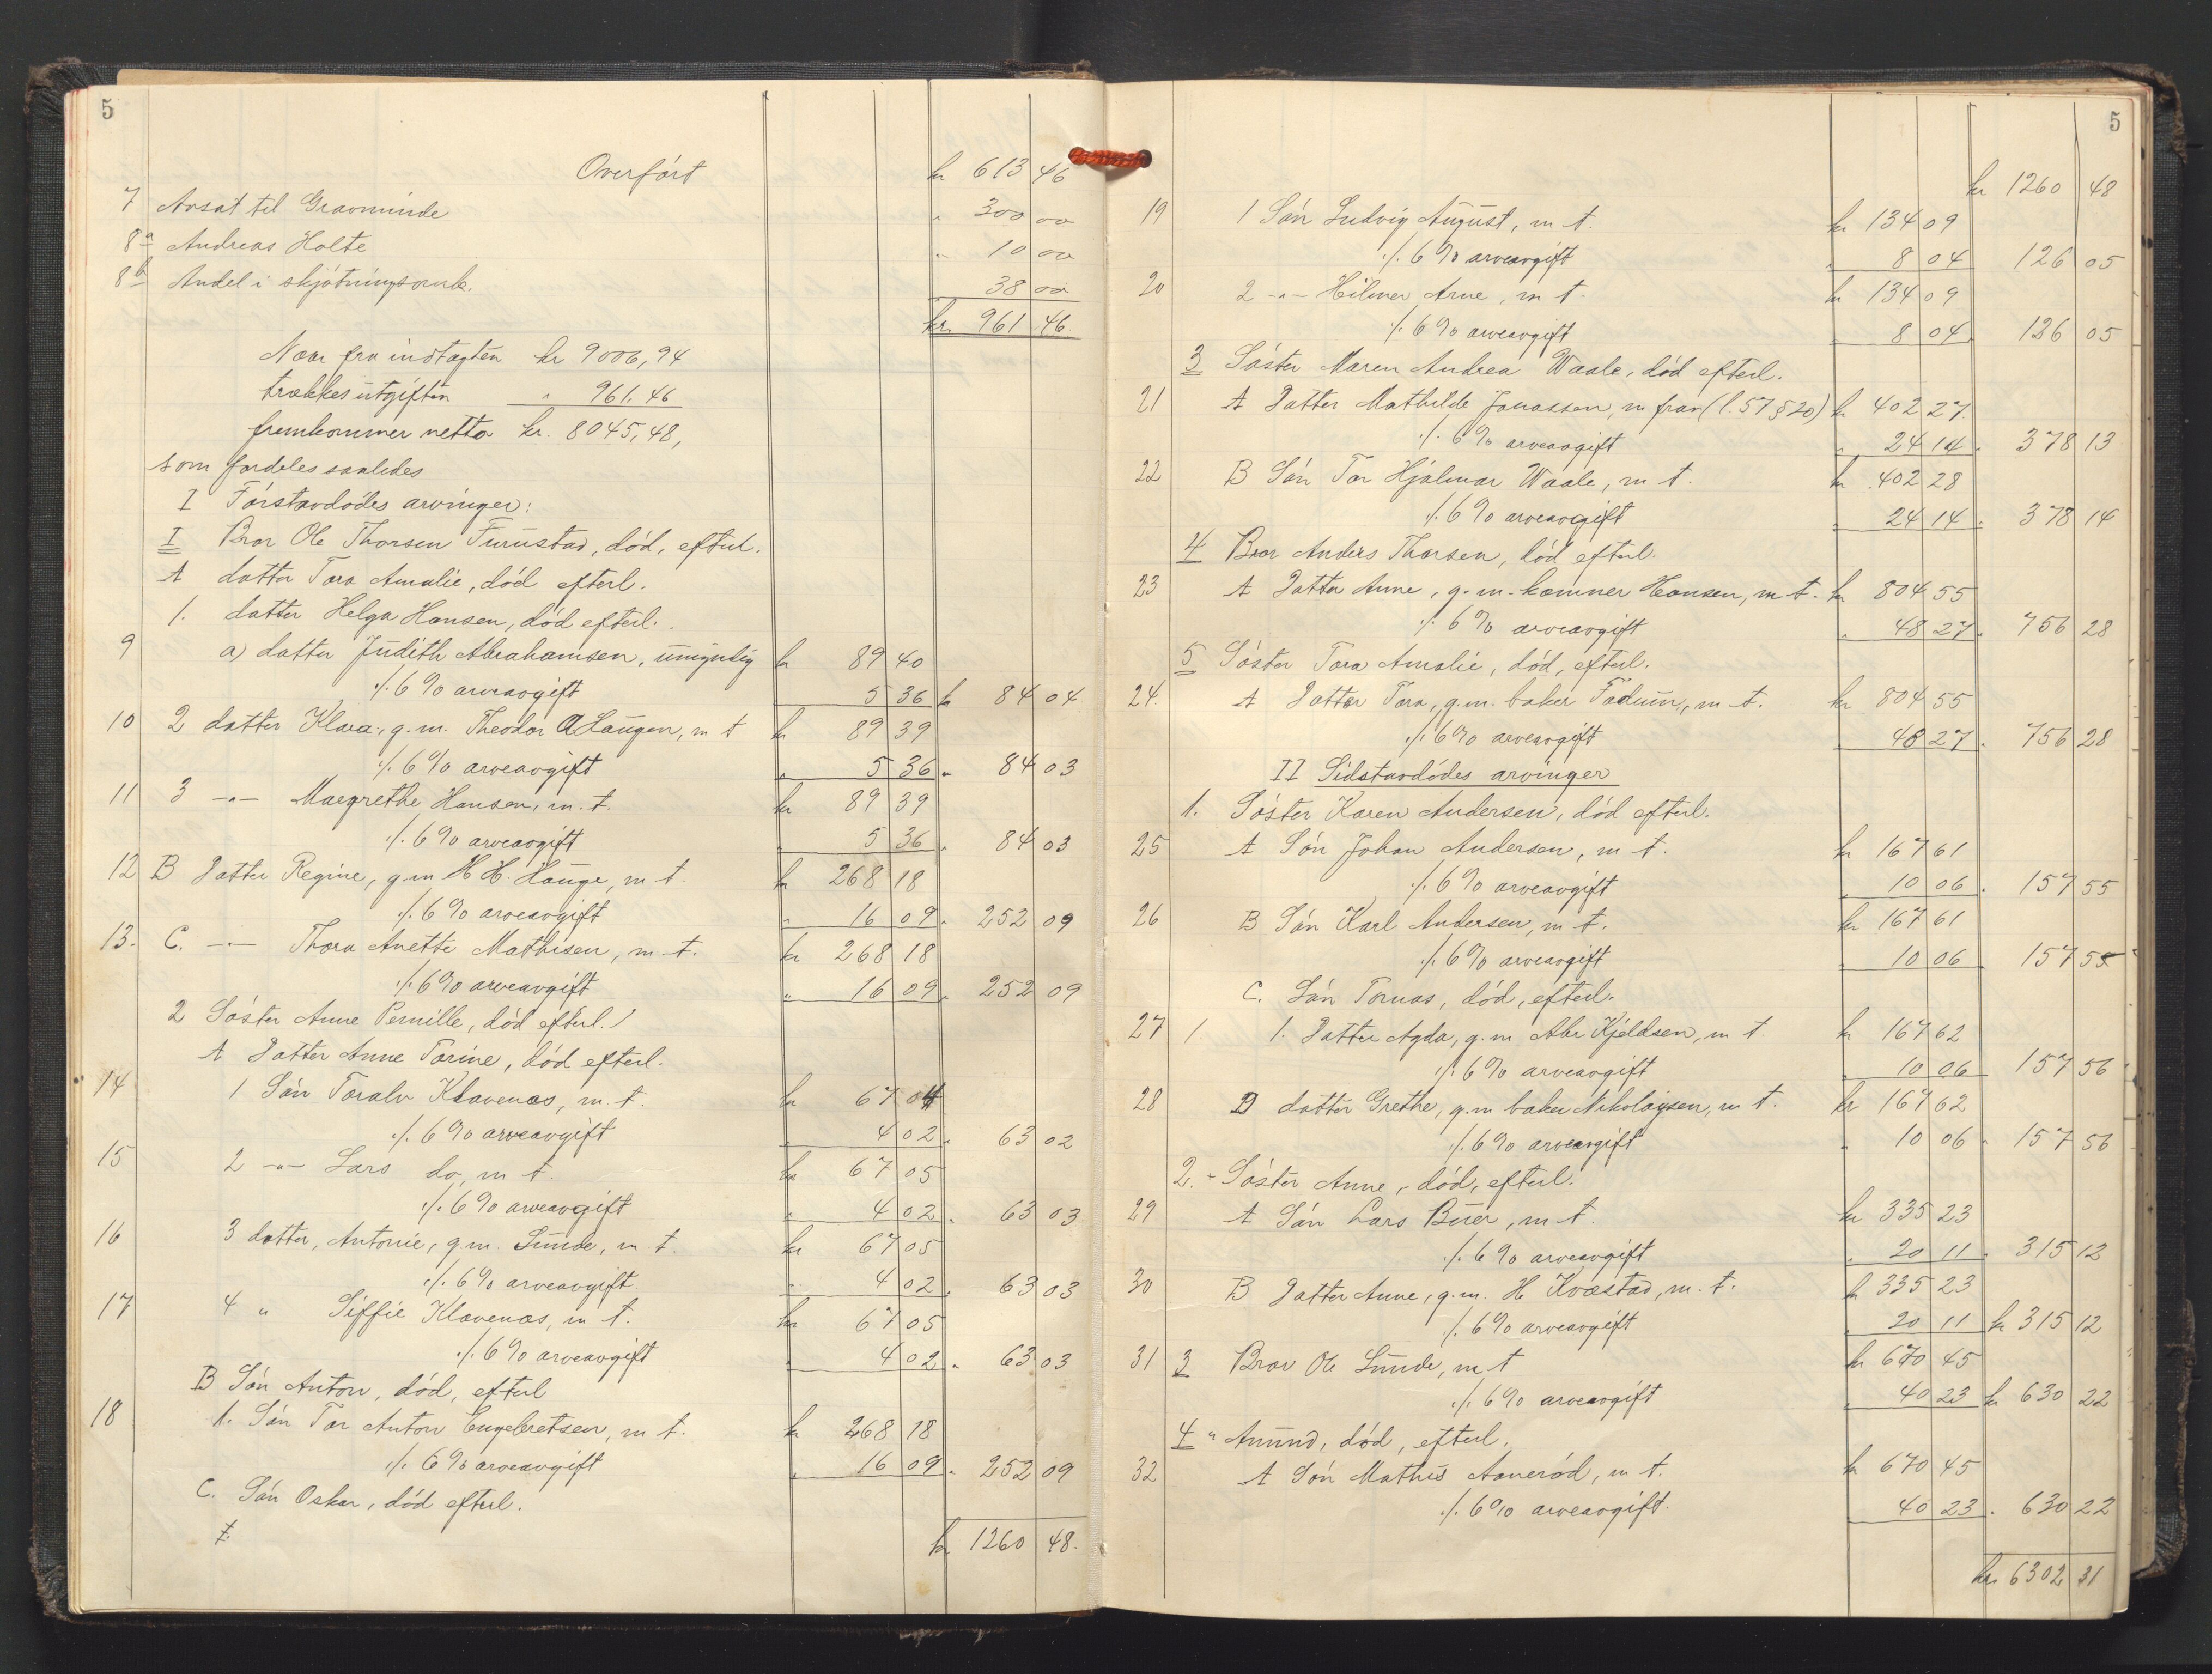 5
Overført kr 613 46
7 Avsat til Gravminde " 300 00
8a Andreas Holte " 10 00
8b Andel i skjøtningsomk. 38 00
kr. 961 46
Naar fra indtægten kr 9006,94
trækkes utgiften " 961.46
fremkommer netto kr. 8045,48,
som fordeles saaledes
I Førstavdødes arvinger:
I Bror Ole Thorsen Furustad, død, efterl.
A datter Tora Amalie, død efterl.
1. datter Helga Hansen, død efterl.
9 a) datter Judith Abrahamsen, umyndig kr 89 40
./. 6 % arveavgift 5 36 kr 84 04
10 2 datter Klara, g.m. Theodor A Haugen, m t kr 89 39
./. 6 % arveavgift " 5 36 " 84 03
11 3 -"- Maegrethe Hansen, m. t. kr 89 39
./. 6 % arveavgift " 5 36 " 84 03
12 B Datter Regine, g.m H H. Hauge, m t. kr 268 18
./. 6 % arveavgift " 16 09 " 252 09
13. C. -"- Thora Anette Mathisen, m t. kr 268 18
./. 6 % arveavgift " 16 09 " 252 09
2 Søster Anne Pernille, død efterl.
A Datter Anne Torine, død efterl.
14 1 Søn Toralv Klavenæs, m. t. kr 67 04
./. 6 % arveavgift " 4 02 " 63 02
15 2 -"- Lars do, m t. kr 67 05
./. 6 % arveavgift " 4 02 " 63 03
16 3 datter, Antonie, g.m. Lunde, m. t. kr 67 05
./. 6 % arveavgift " 4 02 " 63 03
17 4 " Siffie Klavenæs, m t. kr 67 05
./. 6 % arveavgift " 4 02 " 63 03
B Søn Anton, død, efterl
18 1. Søn Tor Anton Engebretsen, m t. kr 268 18
./. 6 % arveavgift " 16 09 " 252 09
C. Søn Oskar, død efterl.
kr 1260 48.
5
kr 1260 48
19 1 Søn Ludvig August, m t. kr 134 09
./. 6 % arveavgift " 8 04 126 05
20 2 -"- Hilmer Arne, m t. kr 134 09
./. 6 % arveavgift " 8 04 126 05
3 Søster Maren Andrea Waale, død efterl.
21 A Datter Mathilde Jonassen, m frav (l. 57 § 20) kr 402 27
./. 6 % arveavgift " 24 14 " 378 13
22 B Søn Tor Hjalmar Waale, m t. kr 402 28
./. 6 % arveavgift " 24 14 " 378 14
4 Bror Anders Thorsen, død efterl.
23 A Datter Anne, g.m. kæmner Hansen, m t. kr 804 55
./. 6 % arveavgift " 48 27 " 756 28
5 Søster Tora Amalie, død, efterl.
24. A Datter Tora, g.m. baker Fadum, m t. kr 804 55
./. 6 % arveavgift 48 27 " 756 28
II Sidstavdødes arvinger
1. Søster Karen Andersen, død efterl.
25 A Søn Johan Andersen, m t. kr 167 61
./. 6 % arveavgift " 10 06 " 157 55
26 B Søn Karl Andersen, m t. kr 167 61
./. 6 % arveavgift " 10 06 157 55
C. Søn Tomas, død, efterl.
27 1 1. Datter Agda, g.m Abr Kjeldsen, m t kr 167 62
./. 6 % arveavgift " 10 06 157 56
28 D datter Grethe, g.m baker Nikolaysen, m t. kr 167 62
./. 6 % arveavgift " 10 06 " 157 56
2. - Søster Anne, død, efterl.
29 A Søn Lars Buer, m t. kr 335 23
./. 6 % arveavgift " 20 11 " 315 12
30 B Datter Anne, g.m. H Kvæstad, m. t. kr 335 23
./. 6 % arveavgift " 20 11 kr 315 12
31 3 Bror Ole Lunde, m t kr 670 45
./. 6 % arveavgift 40 23 kr 630 22
4 " Amund, død, efterl.
32 A Søn Mathis Aanerød, m t. kr 670 45
./. 6 % arveavgift. 40 23 " 630 22
kr 6302 31